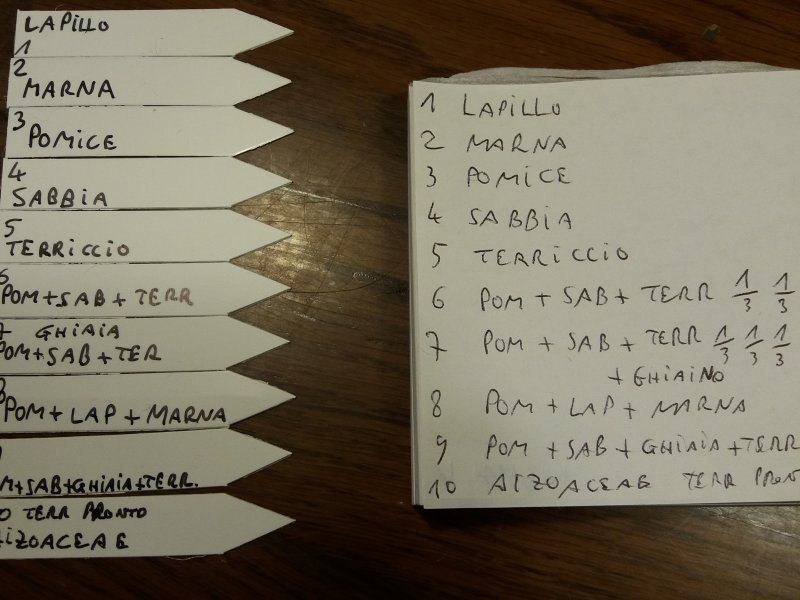 LAPILLO
1
2
MARNA
3
POMICE
4
SABBIA
5
TERRICCIO
6
POM+SAB+TERR
7 GHIAIA
POM+SAB+TER
8
POM+LAP+MARNA
9
M+SAB+GHIAIA+TERR.
10 TERR PRONTO
AIZOACEAE
1 LAPILLO
2 MARNA
3 POMICE
4 SABBIA
5 TERRICCIO
6 POM + SAB + TERR 1/3 1/3
7 POM + SAB + TERR 1/3 1/3 1/3
+ GHIAINO
8 POM + LAP + MARNA
9 POM + SAB + GHIAIA + TERR
10 AIZOACEAE TERR PRONT